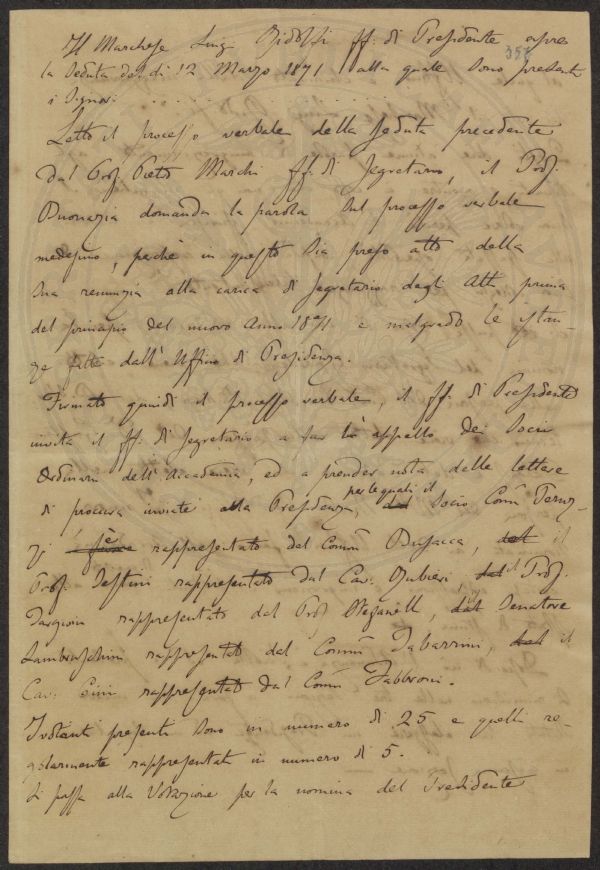 Il Marchese Luigi Ridolfi ff. di Presidente apre
358
la Seduta del di 12 Marzo 1871 alla quale sono presenti
i Signori . . . . . . . . . . . . . . . . . .
Letto il processo verbale della seduta precedente
dal Prof. Pietro Marchi ff. di Segretario, il Prof.
Buonazia domanda la parola sul processo verbale
medesimo, perchè in questo sia preso atto della
sua renunzia alla carica di Segretario degli Atti prima
del principio del nuovo Anno 1871 e malgrado le istan-
ze fatte dall'Uffizio di Presidenza.
Firmato quindi il processo verbale, il ff. di Presidente
invita il ff. di Segretario a far lo appello dei Socii
Ordinarii dell'Accademia, ed a prender nota delle lettere
di procura inviate alla Presidenza, per le quali il Socio Comm Peruz-
zi è rappresentato del Comm Busacca, il
Prof. Pestini rappresentato dal Cav. Rubieri, il Prof.
Targioni rappresentato dal Prof Meganelli, Senatore
Lambruschini rappresentato dal Comm Tabarrini, il
Cav. Cini rappresentato dal Comm Fabbroni.
I votanti presenti sono in numero di 25 e quelli re-
golarmente rappresentati in numero di 5.
Si passa alla Votazione per la nomina del Presidente